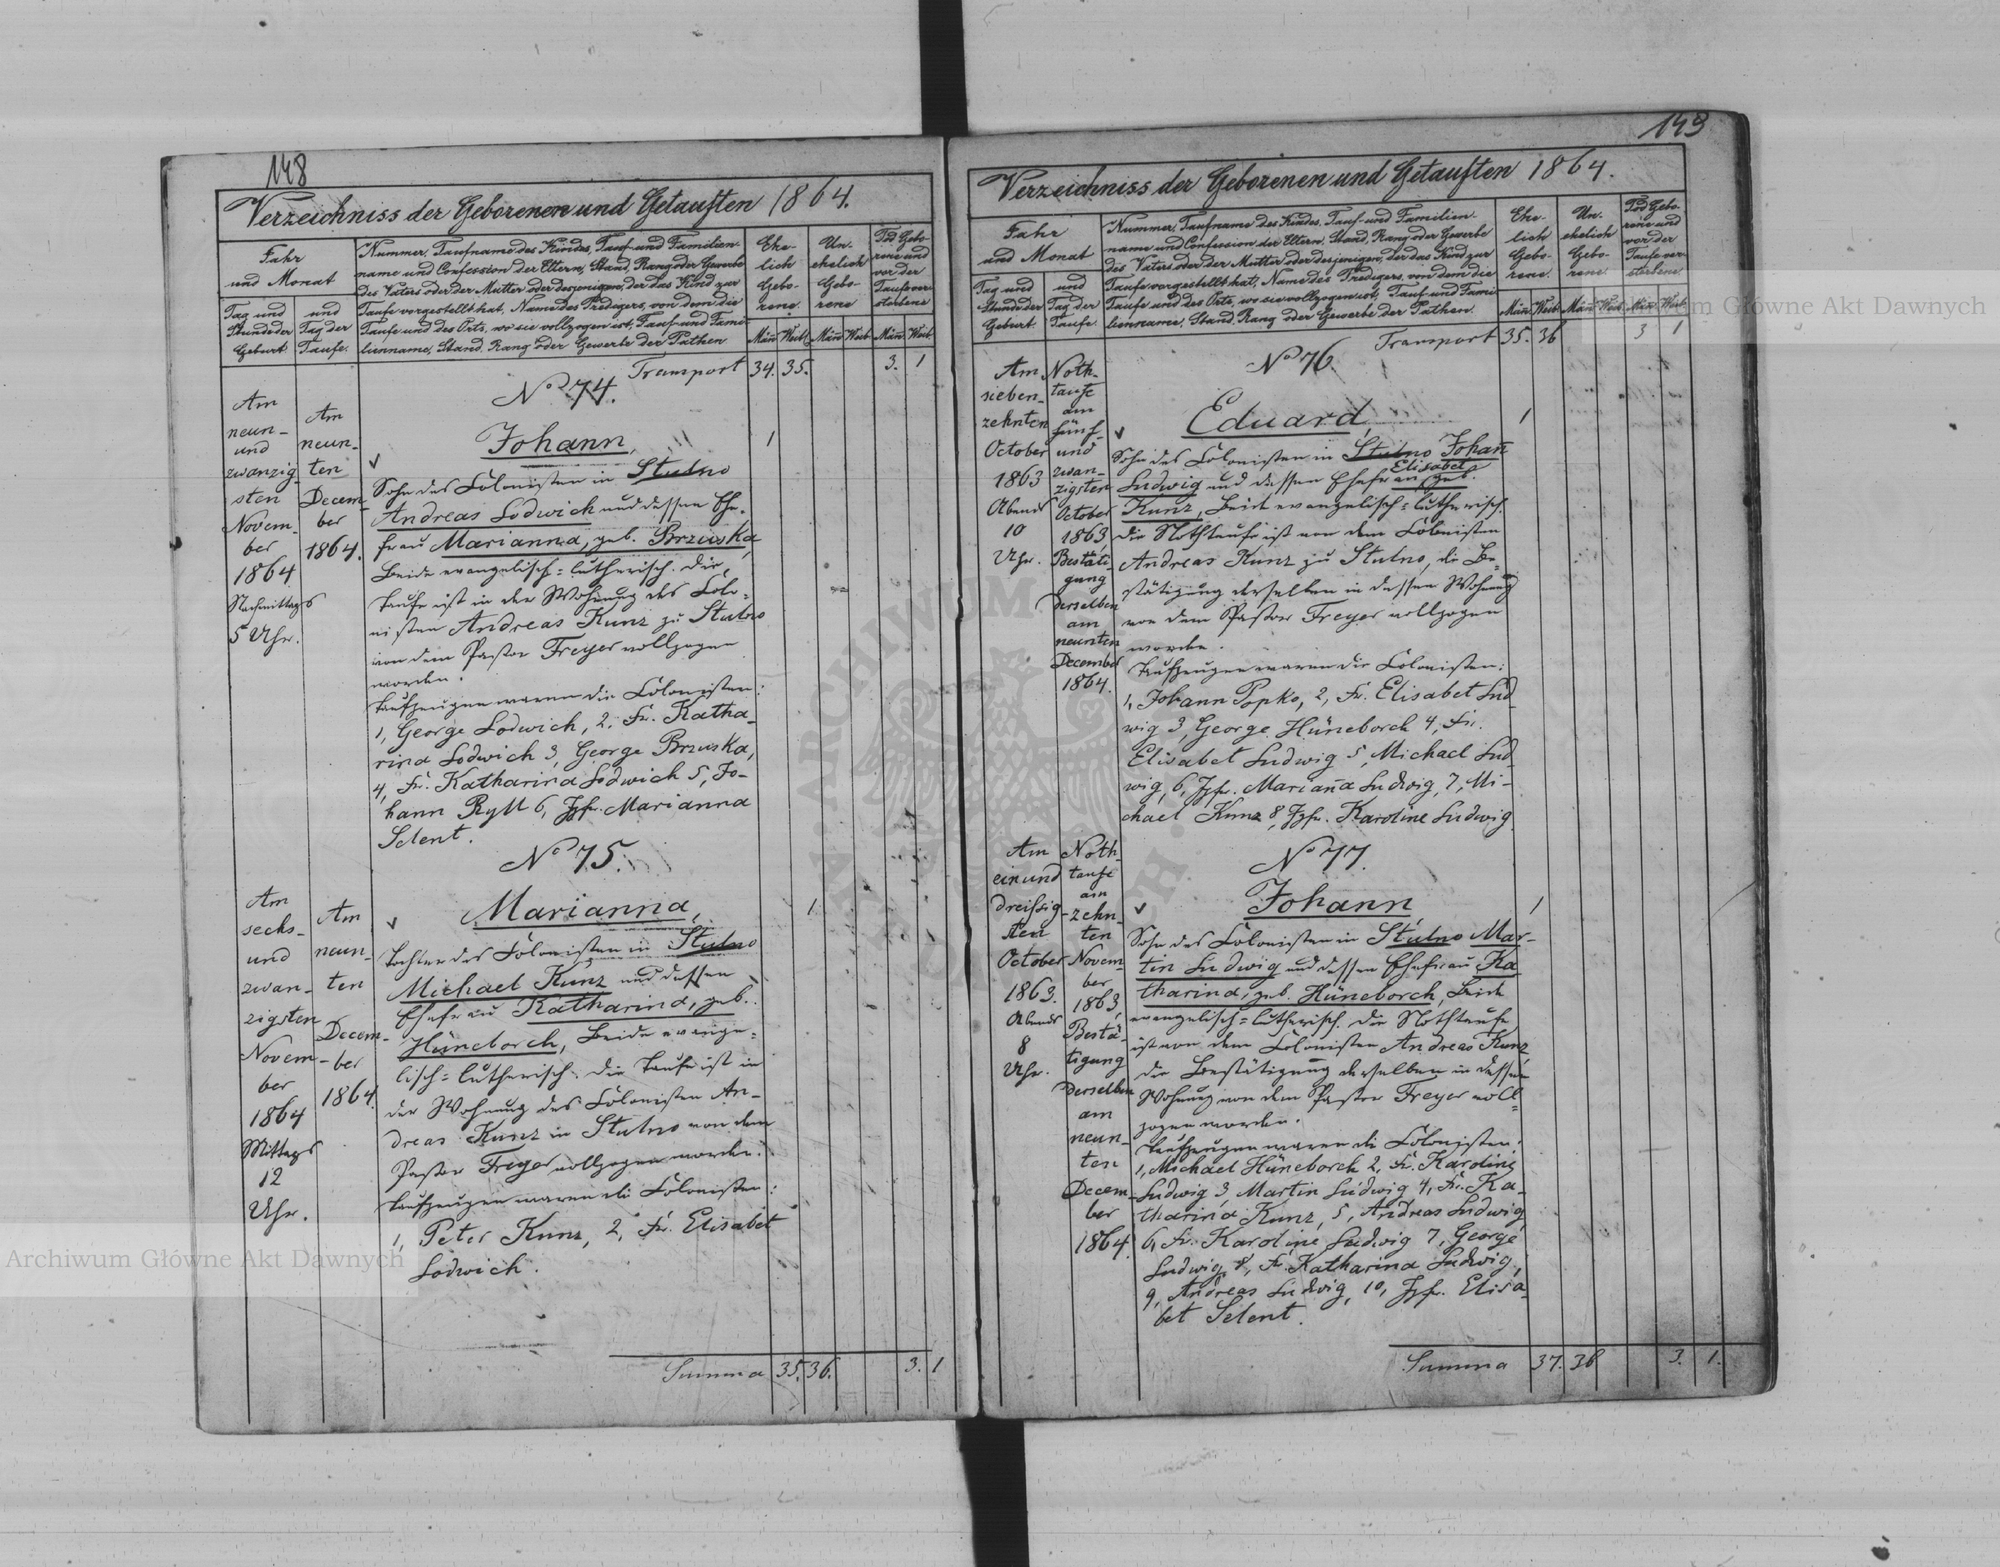 148
Verzeichniss der Geborenen und Getauften 1864.
Jahr
und Monat
Tag und
Stunde der
Geburt.
und
Tag der
Taufe.
Nummer, Taufname des Kindes, Tauf- und Familien-
name und Confession der Eltern, Stand, Rang oder Gewerbe
des Vaters oder der Mutter oder desjenigen, der das Kind zur
Taufe vorgestellt hat, Name des Predigers, von dem die
Taufe und des Orts, wo sie vollzogen ist, Tauf- und Fami-
lienname, Stand, Rang oder Gewerbe der Pathen.
Ehe-
lich
Gebo-
rene.
Un-
ehelich
Gebo-
rene
Tod Gebo-
rene und
vor der
Taufe ver-
storbene
Män Weib Män Weib Män Weib
Transport 34. 35. 3. 1
Am
neun-
und
zwanzig-
sten
Novem-
ber
1864
Nachmittags
5 Uhr.
Am
neun-
ten
Decem-
ber
1864.
No 74.
Johann,
1
Sohn des Colonisten in Stulno
Andreas Lodwich und dessen Ehe-
frau Marianna, geb. Brzuska,
Beide evangelisch-lutherisch. Die
Taufe ist in der Wohnung des Colo-
nisten Andreas Kunz zu Stulno
von dem Pastor Freyer vollzogen
worden.
Taufzeugen waren die Colonisten:
1, George Lodwich, 2, Fr. Katha-
rina Lodwich 3, George Brzuska,
4, Fr. Katharina Lodwich 5, Jo-
hann Ryll 6, Jgfr. Marianna
Selent.
Am
sechs-
und
zwan-
zigsten
Novem-
ber
1864
Mittags
12
Uhr.
Am
neun-
ten
Decem-
ber
1864.
No 75.
Marianna,
1
Tochter des Colonisten in Stulno
Michael Kunz und dessen
Ehefrau Katharina, geb.
Hüneborch, Beide evange-
lisch-lutherisch. Die Taufe ist in
der Wohnung des Colonisten An-
dreas Kunz in Stulno von dem
Pastor Freyer vollzogen worden.
Taufzeugen waren die Colonisten:
1, Peter Kunz, 2, Fr. Elisabet
Lodwich.
Summa 35. 36. 3. 1
149
Verzeichniss der Geborenen und Getauften 1864.
Jahr
und Monat
Tag und
Stunde der
Geburt.
und
Tag der
Taufe.
Nummer, Taufname des Kindes, Tauf- und Familien-
name und Confession der Eltern, Stand, Rang oder Gewerbe
des Vaters oder der Mutter oder desjenigen, der das Kind zur
Taufe vorgestellt hat, Name des Predigers, von dem die
Taufe und des Orts, wo sie vollzogen ist, Tauf- und Fami-
lienname, Stand, Rang oder Gewerbe der Pathen.
Ehe-
lich
Gebo-
rene.
Un-
ehelich
Gebo-
rene.
Tod Gebo-
rene und
vor der
Taufe ver-
storbene.
Män Weib Män Weib Män Weib
Transport 35. 36 3 1
Am
sieben-
zehnten
October
1863
Abends
10
Uhr.
Noth-
taufe
am
fünf-
und
zwan-
zigsten
October
1863,
Bestäti-
gung
derselben
am
neunten
December
1864.
No 76.
Eduard,
1
Sohn des Colonisten in Stulno Johann
Ludwig und dessen Ehefrau Elisabet geb.
Kunz, Beide evangelisch-lutherisch.
Die Nothtaufe ist von dem Colonisten
Andreas Kunz zu Stulno, die Be-
stätigung derselben in dessen Wohnung
von dem Pastor Freyer vollzogen
worden.
Taufzeugen waren die Colonisten:
1, Johann Popko, 2, Fr. Elisabet Lud-
wig 3, George Hüneborch 4, Fr.
Elisabet Ludwig 5, Michael Lud-
wig, 6, Jgfr. Marianna Ludwig, 7, Mi-
chael Kunz 8, Jgfr. Karoline Ludwig
Am
ein und
dreissig-
sten
October
1863.
Abends
8
Uhr.
Noth-
taufe
am
zehn-
ten
Novem-
ber
1863,
Bestä-
tigung
derselben
am
neun-
ten
Decem-
ber
1864.
No 77.
Johann
1
Sohn des Colonisten in Stulno Mar-
tin Ludwig und dessen Ehefrau Ka-
tharina, geb. Hüneborch, Beide
evangelisch-lutherisch. Die Nothtaufe
ist von dem Colonisten Andreas Kunz,
die Bestätigung derselben in dessen
Wohnung von dem Pastor Freyer voll-
zogen worden.
Taufzeugen waren die Colonisten:
1, Michael Hüneborch 2, Fr. Karoline
Ludwig 3 Martin Ludwig 4, Fr. Ka-
tharina Kunz, 5, Andreas Ludwig
6, Fr. Karoline Ludwig 7, George
Ludwig, 8, Fr. Katharina Ludwig,
9, Andreas Ludwig, 10, Jgfr. Elisa-
bet Selent.
Summa 37. 36 3. 1.
Archiwum Główne Akt Dawnych
Archiwum Główne Akt Dawnych